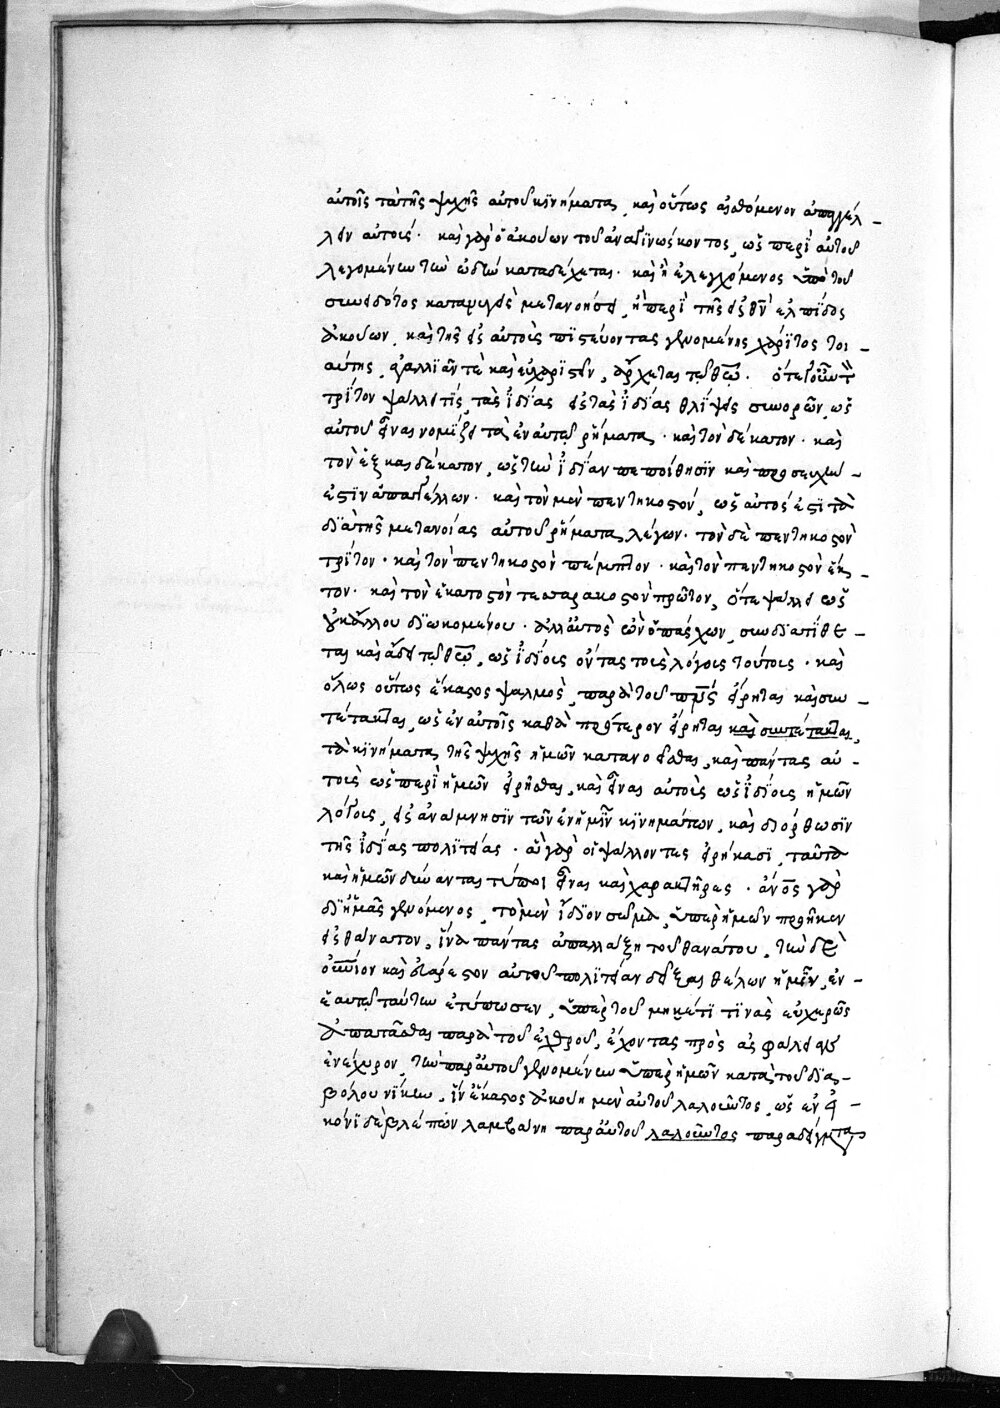 αὐτοῖς τὰ τῆς ψυχῆς αὐτοῦ κινήματα, καὶ οὕτως αἰσθόμενον ἀπαγγέλ-
λειν αὐτούς· καὶ γὰρ ὁ ἀκούων τοῦ ἀναγινώσκοντος, ὡς περὶ αὐτοῦ
λεγομένην τὴν ὠδὴν καταδέχεται· καὶ ἢ ἐλεγχόμενος ὑπὸ τοῦ
συνειδότος κατανυγεὶς μετανοήσει, ἢ περὶ τῆς εἰς θν̅ ἐλπίδος
ἀκούων, καὶ τῆς εἰς αὐτοὺς πιστεύοντας γινομένης χάριτος τοι-
αύτης, ἀγαλλιᾶν τὲ καὶ εὐχαριστεῖν, ἄρχεται τῷ θεῶ. ὅτε γοῦν
τρίτον ψάλλει τίς, τὰς ἰδίας εἰς τὰς ἰδίας θλίψεις συνορῶν, ὡς
αὐτοῦ εἶναι νομίζει τὰ ἐν αὐτῷ ῥήματα· καὶ τὸν δέκατον· καὶ
τὸν ἑξκαιδέκατον, ὡς τὴν ἰδίαν πεποίθησιν καὶ προσευχὴν
ἐστὶν ἀπαγγέλλων· καὶ τὸν μὲν πεντηκοστόν, ὡς αὐτός ἐστι τὰ
διὰ τῆς μετανοίας αὐτοῦ ῥήματα λέγων· τὸν δὲ πεντηκοστὸν
τρίτον· καὶ τὸν πεντηκοστὸν πέμπτον· καὶ τὸν πεντηκοστὸν ἕκ-
τον· καὶ τὸν ἑκατοστὸν τεσσαρακοστὸν πρῶτον, ὅτε ψάλλει ὡς
οὐκ ἄλλου διωκομένου· ἀλλ' αὐτὸς ὢν ὁ πάσχων, συνδιατίθε-
ται καὶ ἄδει τῷ θεῷ, ὡς ἰδίοις ὄντας τοῖς λόγοις τούτοις· καὶ
ὅλως οὕτως ἕκαστος ψαλμὸς, παρὰ τοῦ πν̅ς εἴρηται καὶ συν-
τέτακται, ὡς ἐν αὐτοῖς καθὰ πρότερον εἴρηται καὶ συντέτακται,
τὰ κινήματα τῆς ψυχῆς ἡμῶν κατανοεῖσθαι, καὶ πάντας αὐ-
τοὺς ὡς περὶ ἡμῶν εἰρῆσθαι, καὶ εἶναι αὐτοὺς ὡς ἰδίους ἡμῶν
λόγους, εἰς ἀνάμνησιν τῶν ἐν ἡμῖν κινημάτων, καὶ διόρθωσιν
τῆς ἰδίας πολιτείας· ἃ γὰρ οἱ ψάλλοντες εἰρήκασι, ταῦτα
καὶ ἡμῶν δύνανται τύποι εἶναι καὶ χαρακτῆρες·
δι' ἡμᾶς γενόμενος, τὸ μὲν ἴδιον σῶμα, ὑπὲρ ἡμῶν προῆκεν
εἰς θάνατον, ἵνα πάντας ἀπαλλάξῃ τοῦ θανάτου, τὴν δὲ
οὐνιον καὶ εὐάρεστον αὐτοῦ πολιτείαν δεῖξαι θέλων ἡμῖν, ἐν
ἑαυτῷ ταύτην ἐτύπωσεν, ὑπὲρ τοῦ μηκέτι τινὰς εὐχερῶς
ἀπατᾶσθαι παρὰ τοῦ ἐχθροῦ, ἔχοντας πρὸς ἀσφάλειαν
ἐνέχυρον, τὴν παρ' αὐτοῦ γενομένην ὑπὲρ ἡμῶν κατὰ τοῦ δια-
βόλου νίκην, ἵν' ἕκαστος ἀκούη μὲν αὐτοῦ λαλοῦντος, ὡς ἐν εἰ-
κόνι δὲ βλέπων λαμβάνη παρ' αὐτοῦ λαλοῦντος παραδείγματα